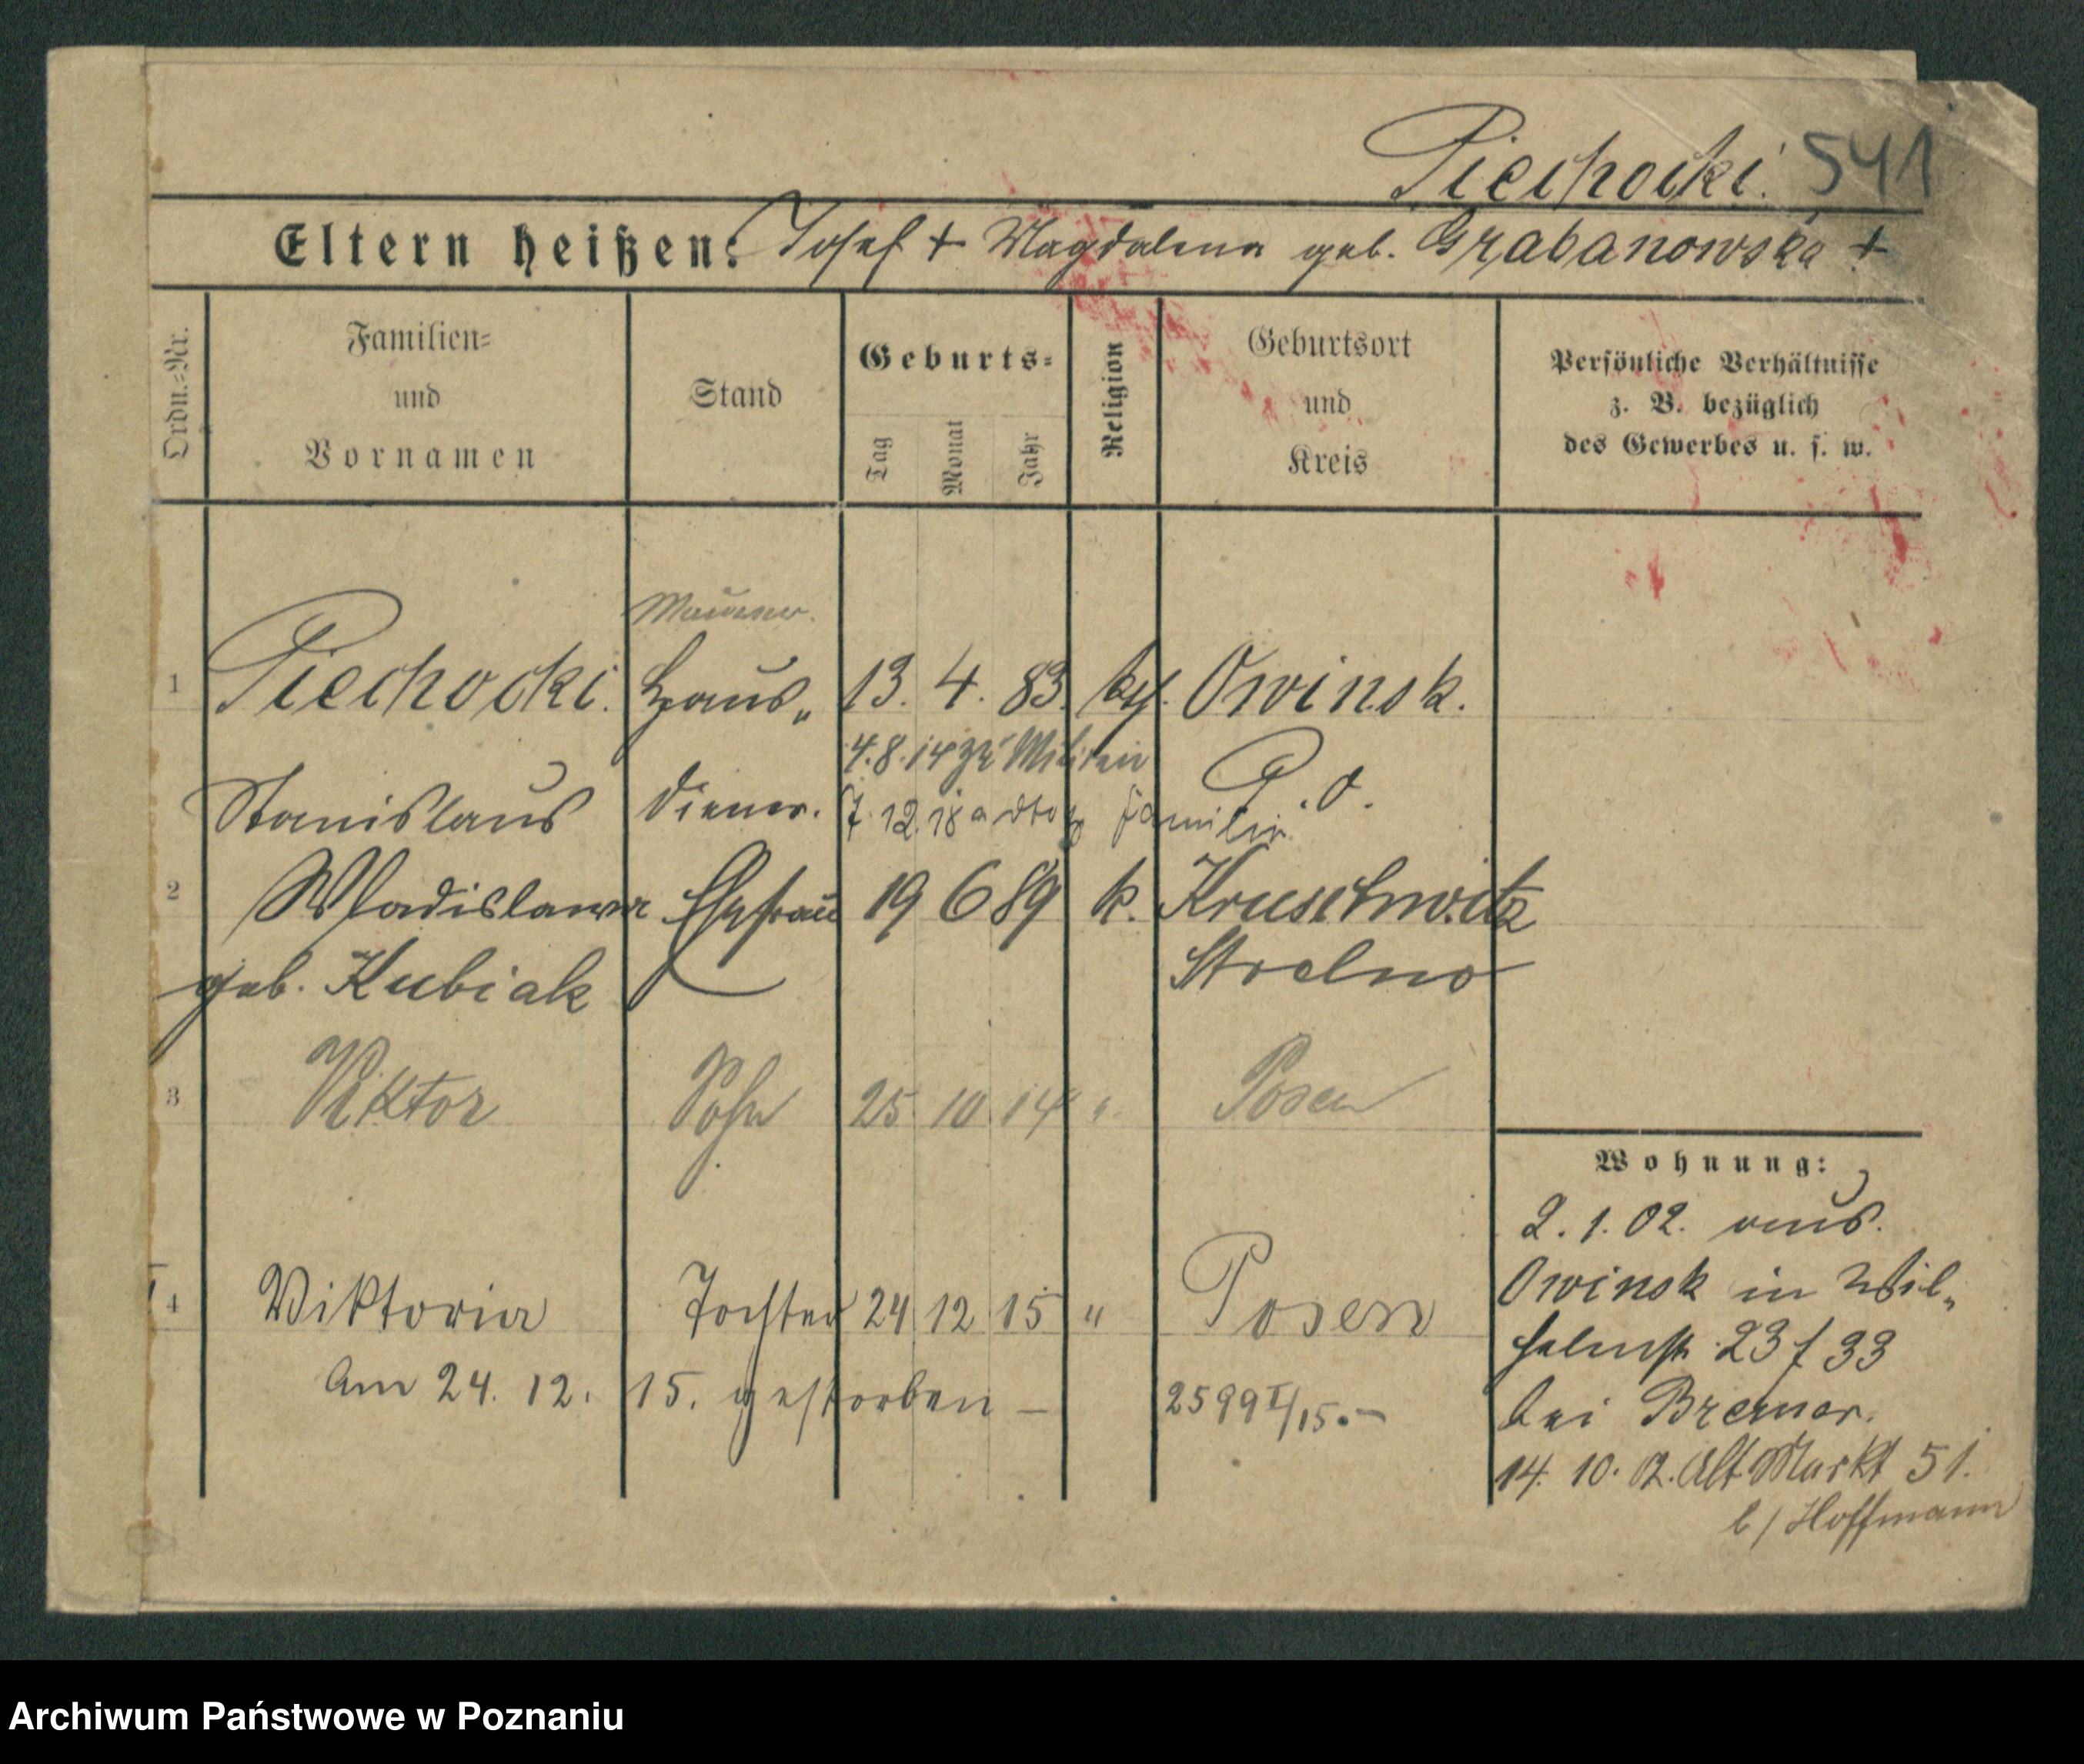 Piechocki. 541
Eltern heißen: Josef + Magdalena geb. Grabanowska +
Ordn.=Nr.
Familien=
und
Vornamen
Stand
Geburts=
Tag
Monat
Jahr
Religion
Geburtsort
und
Kreis
Persönliche Verhältnisse
z. B. bezüglich
des Gewerbes u. s. w.
Maurer.
1 Piechocki. Haus„ 13. 4. 83. kth. Owinsk.
4.8.14 zu Militair
Stanislaus diener. P. O.
7.12.18 a dto z Familie
2 Wladislawa Ehefrau 19 6 89 k. Kruschwitz
geb. Kubiak Strelno
3 Viktor Sohn 25 10 14 " Posen
4 Viktoria Tochter 24 12 15 " Posen
Am 24. 12. 15. gestorben — 2599 I/15.—
Wohnung:
2. 1. 02. aus.
Owinsk in Wil„
helmstr. 23 / 33
bei Bremer.
14. 10. 02. Alt Markt 51.
b/ Hoffmann
Archiwum Państwowe w Poznaniu